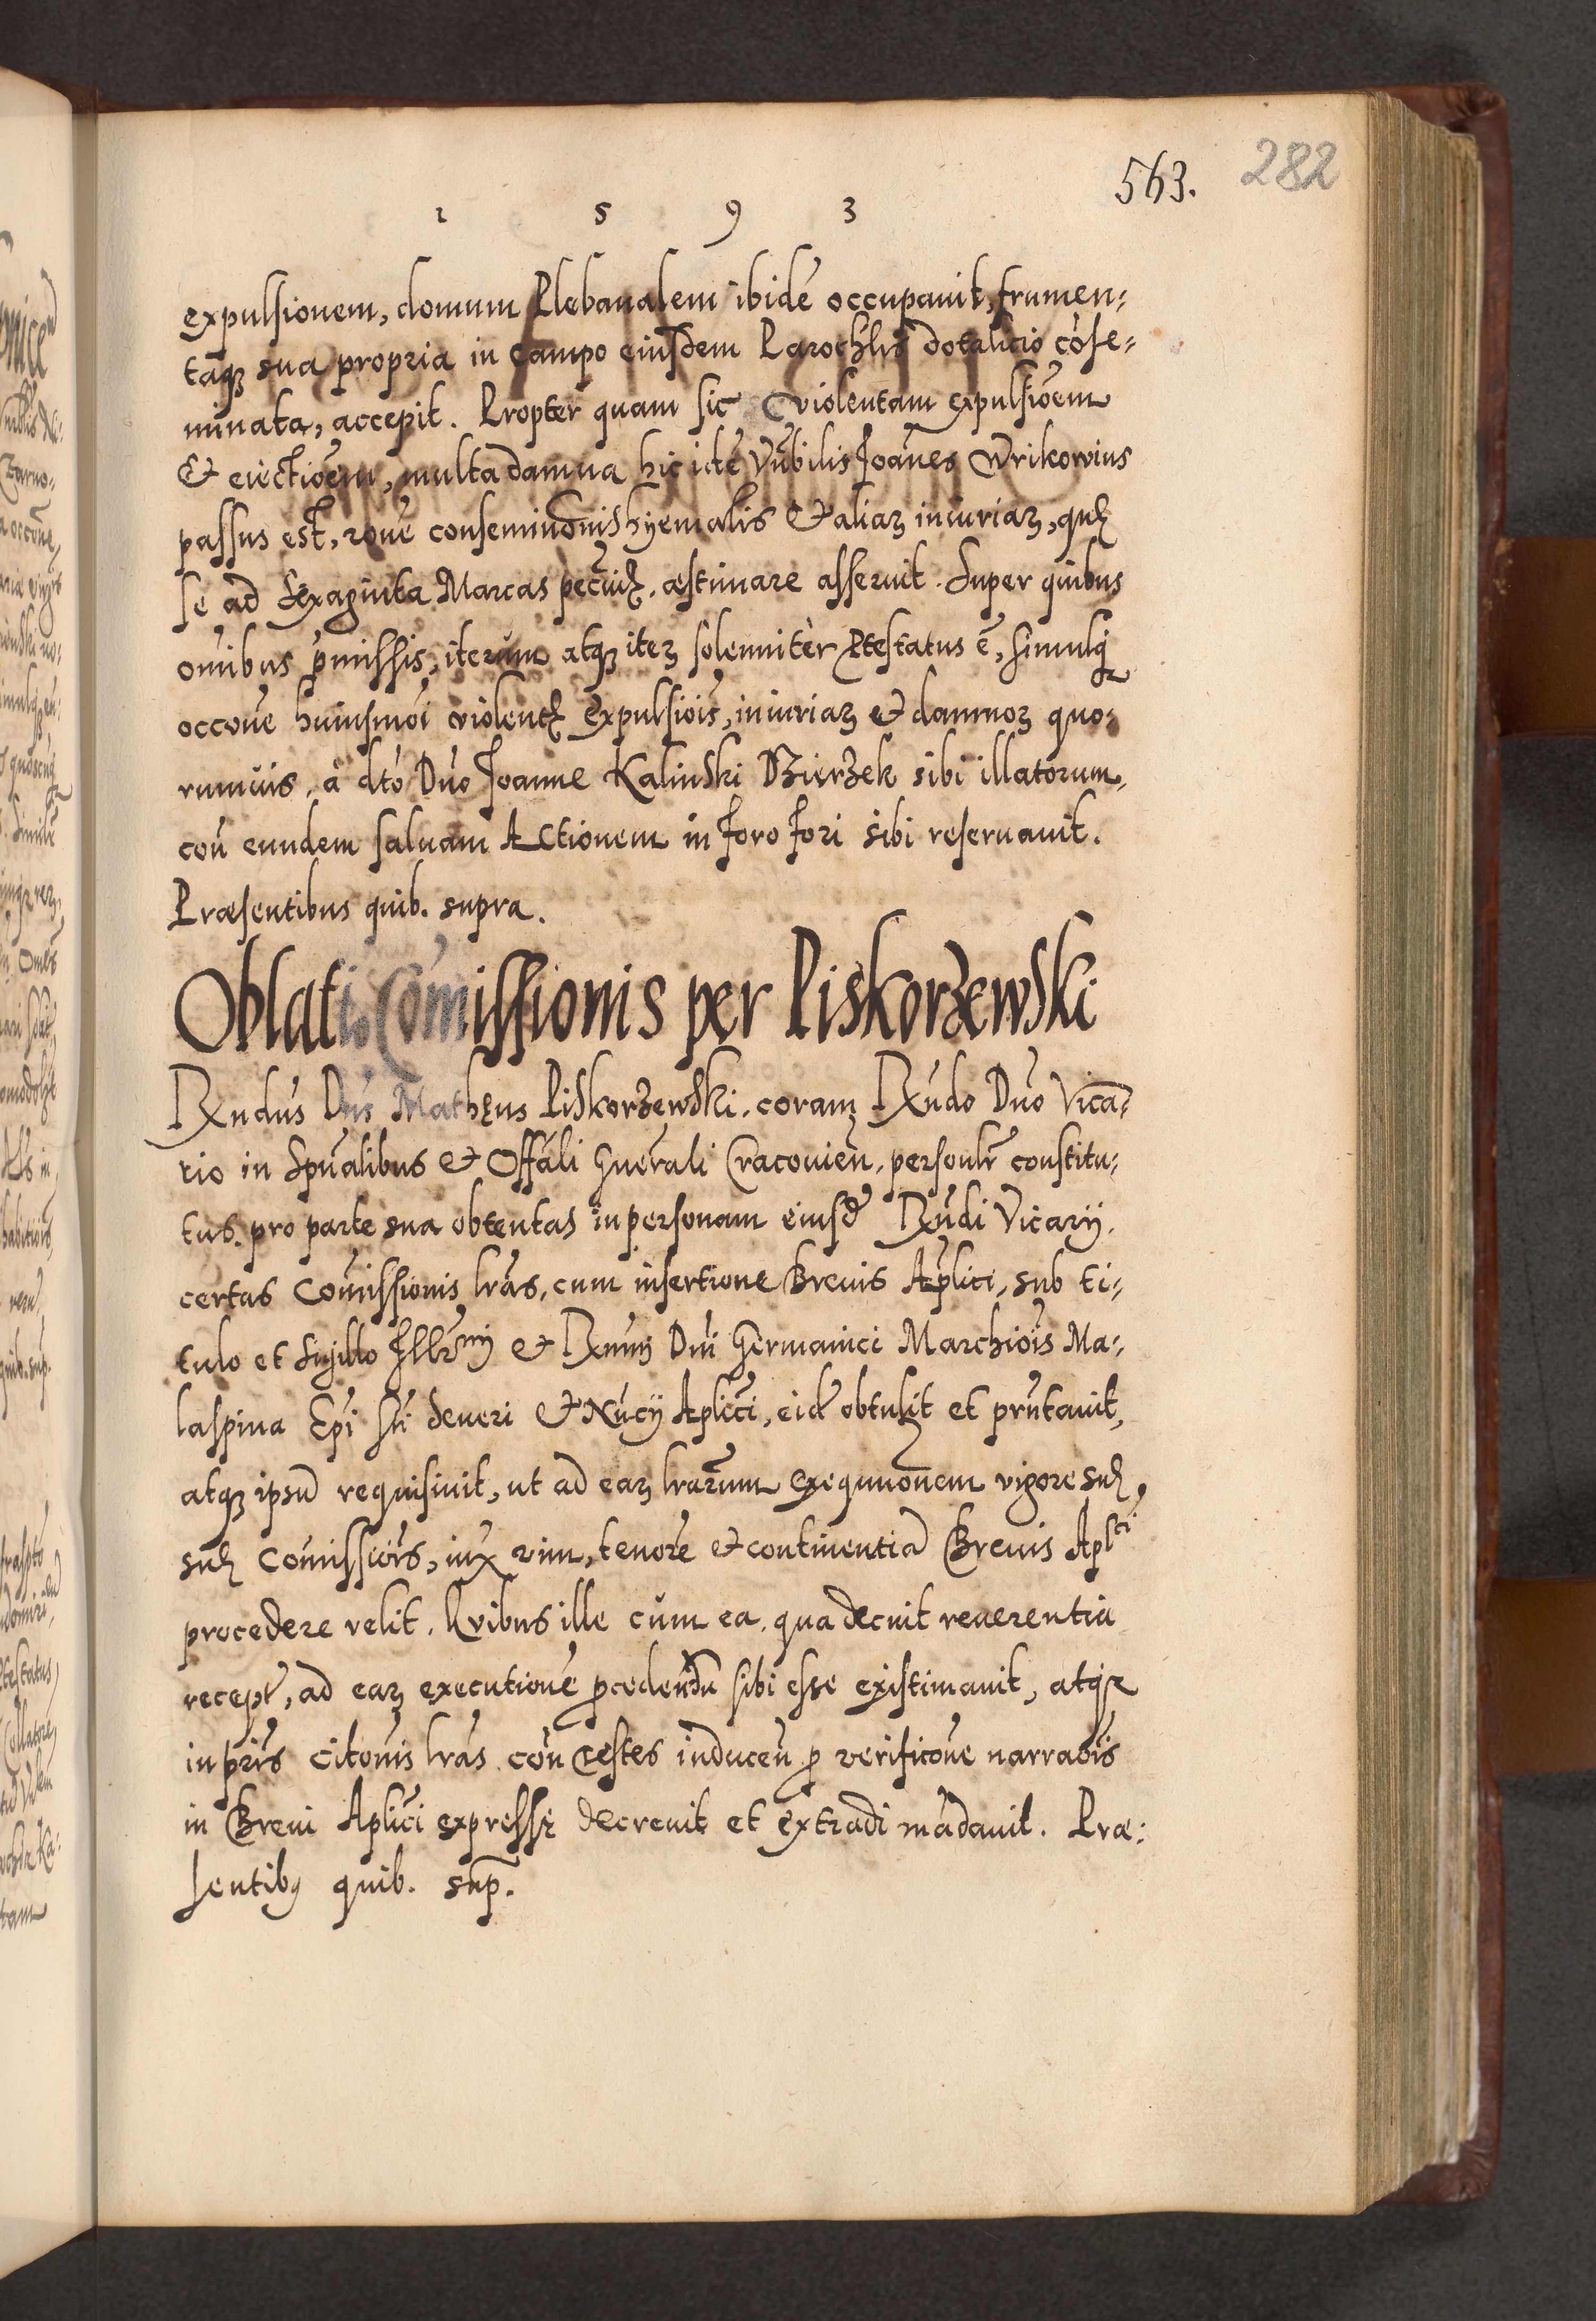 563. 282
1 5 9 3
expulsionem, domum Plebanalem ibidē occupauit, frumen-
taqȝ sua propria in campo eiusdem Parochlis dotalicio cōse-
minata, accepit. Propter quam sic violentam expulsiōem
Et eiectiōem, multa damna hic idē Vn̄bilis Joān̄es Wrikowius
passus est, rōne conseminōnis hyemalis et aliaȝ iniuriaȝ, quæ
se ad Sexaginta Marcas pecūiæ. æstimare asseruit. Super quibus
om̄ibus p̄missis, iterum atqȝ iteȝ solenniter Ptestatus ē, simulqȝ
occōne huiusmōi violentæ expulsiōis, iniuriaȝ et damnoȝ quo-
rumuis, à dto Dn̄o Joanne Kalinski Dzierzek sibi illatorum,
con̄ eundem saluam Actionem in foro fori sibi reseruauit.
Præsentibus quib. supra.
Oblatio Com̄issionis per Piskorzewski
Rn̄dus Dn̄s Mathæus Piskorzewski. coram Rn̄do Dn̄o Vica-
rio in Sp̄ualibus et Offāli Gn̄erali Cracouien̄. personlr̄ constitu-
tus. pro parte sua obtentas in personam eiusd̄ Rn̄di Vicarij.
certas Com̄issionis lr̄as, cum insertione Breuis Ap̄lici, sub ti-
tulo et Sigillo Illr̄mi et Rmi Dn̄i Germanici Marchiōis Ma-
laspina Ep̄i Sti Seueri et Nūcij Aplici, eid̄ obtulit et prn̄tauit,
atqȝ ipsū requisiuit, ut ad eaȝ lrarum exequuōnem vigore suæ,
suæ Com̄issiōis, iux̄ vim, tenorē et continentiā Breuis Aplci
procedere velit. Quibus ille cum ea. qua decuit reuerentia
recept̄, ad eaȝ executionē p̄cedendū sibi esse existimauit, atqȝ
in prīs citōnis lr̄as con̄ testes inducen̄ p̄ verificōne narraōis
in Breui Aplici expressæ decreuit et extradi mādauit. Præ-
sentibȝ quib. sup̄.